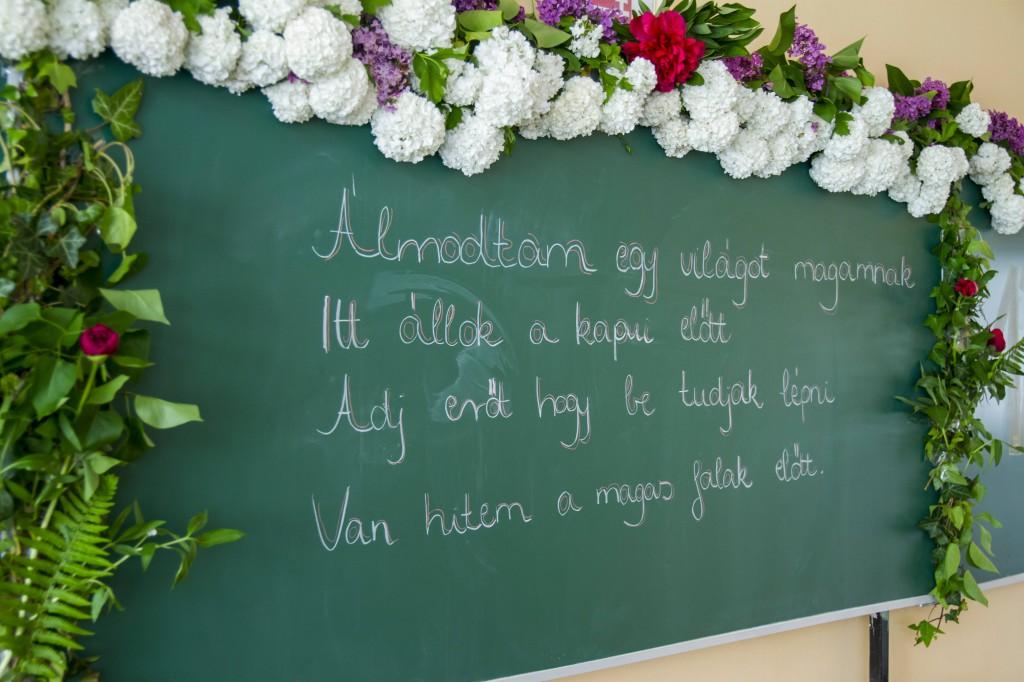 Álmodtam egy világot magamnak
Itt állok a kapui előtt
Adj erőt hogy be tudjak lépni
Van hitem a magas falak előtt.